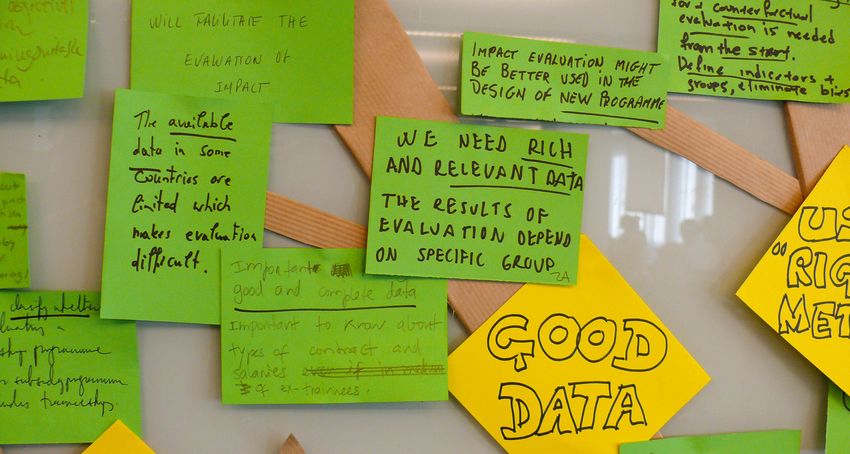 WILL FACILITATE THE
EVALUATION OF
IMPACT
IMPACT EVALUATION MIGHT
BE BETTER USED IN THE
DESIGN OF NEW PROGRAMME
for a counterfactual
evaluation is needed
from the start.
Define indicators +
groups, eliminate bias
The available
data in some
Countries are
limited which
makes evaluation
difficult.
WE NEED RICH
AND RELEVANT DATA
THE RESULTS OF
EVALUATION DEPEND
ON SPECIFIC GROUP
Important
good and complete data
Important to know about
types of contract and
salaries
of ex-trainees.
GOOD
DATA
"RIG
MET
clarify whether
programme
programme
traineeship.